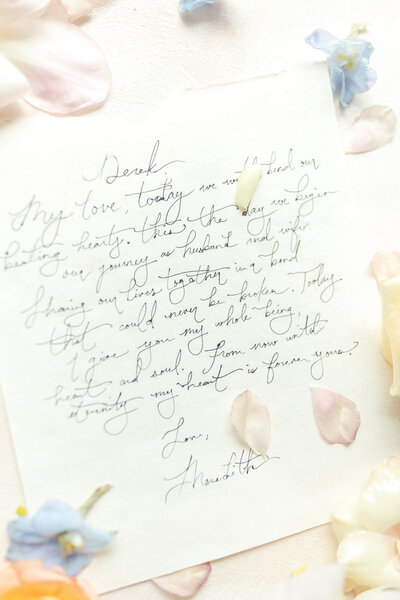 Derek,
My love, today we will bind our
beating hearts. This the day we begin
our journey as husband and wife
sharing our lives together in a bond
that could never be broken. Today
I give you my whole being,
heart and soul. From now until
eternity my heart is forever yours.
Love,
Meredith